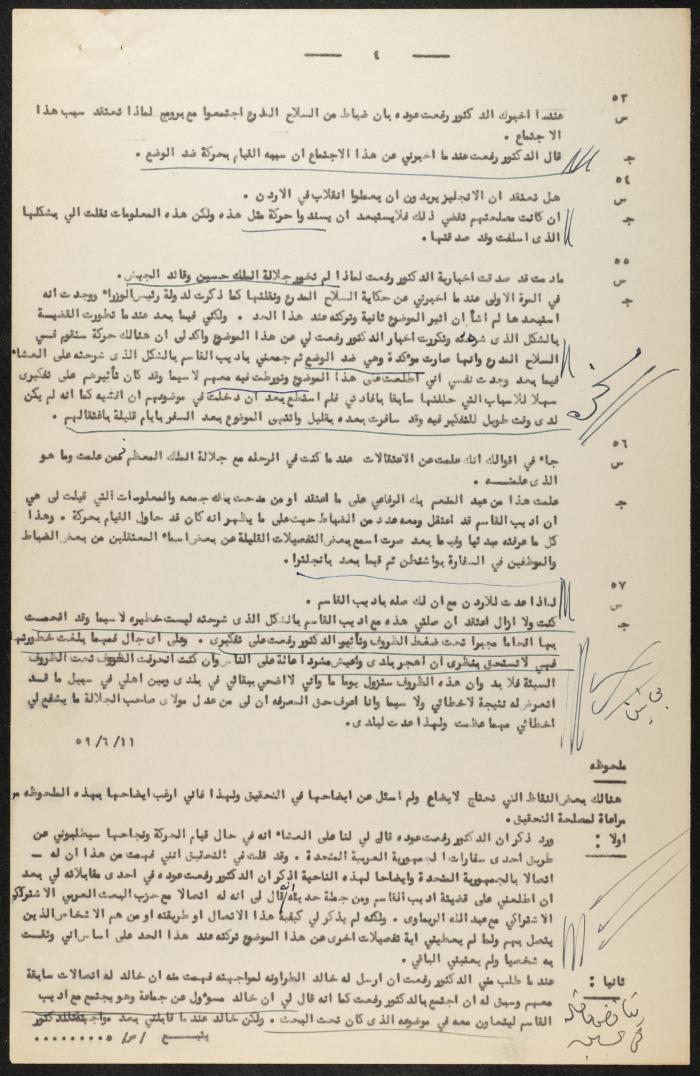 — ٤ —
٥٣
س عندما اخبرك الدكتور رفعت عوده بان ضباط من السلاح المدرع اجتمعوا مع بروبج لماذا تعتقد سبب هذا
الاجتماع .
جـ قال الدكتور رفعت عندما اخبرني عن هذا الاجتماع ان سببه القيام بحركة ضد الوضع .
٥٤
س هل تعتقد ان الانجليز يريدون ان يعملوا انقلاب في الاردن .
جـ ان كانت مصلحتهم تقضي ذلك فلا يستبعد ان يسندوا حركة مثل هذه ولكن هذه المعلومات نقلت الي بشكلها
الذى اسلفت وقد صدقتها .
٥٥
س مادمت قد صدقت اخبارية الدكتور رفعت لماذا لم تخبر جلالة الملك حسين وقائد الجيش .
جـ في المرة الاولى عندما اخبرني عن حكاية السلاح المدرع ونقلتها كما ذكرت لدولة رئيس الوزراء ووجدت انه
استبعدها لم اشأ ان اثير الموضوع ثانية وتركته عند هذا الحد . ولكني فيما بعد عندما تطورت القضية
بالشكل الذى شرحته وتكررت اخبار الدكتور رفعت لي عن هذا الموضوع واكد لى ان هنالك حركة ستقوم في
السلاح المدرع وانها صارت مؤكدة وهي ضد الوضع ثم جمعني باديب القاسم بالشكل الذى شرحته على العشاء
فيما بعد وجدت نفسي اني اطلعت على هذا الموضوع وتورطت فيه معهم لا سيما وقد كان تأثيرهم على تفكيرى
سهلا للاسباب التي حللتها سابقا بافادتي فلم استطع بعد ان دخلت في موضوعهم ان افشيه كما انه لم يكن
لدى وقت طويل للتفكير فيه وقد سافرت بعده بقليل وانتهى الموضوع بعد السفر بايام قليلة باعتقالهم .
٥٦
س جاء في اقوالك انك علمت عن الاعتقالات عندما كنت في الرحله مع جلالة الملك المعظم فمن علمت وما هو
الذى علمته .
جـ علمت هذا من عبد المنعم بك الرفاعي على ما اعتقد او من مدحت بك جمعه والمعلومات التي قيلت لى هي
ان اديب القاسم قد اعتقل ومعه عدد من الضباط حيث على ما يظهر انه كان قد حاول القيام بحركة . وهذا
كل ما عرفته مبدئيا وفيما بعد صرت اسمع بعض التفصيلات القليلة عن بعض اسماء المعتقلين من بعض الضباط
والموظفين في السفارة بواشنطن ثم فيما بعد بانجلترا .
٥٧
س لماذا عدت للاردن مع ان لك صله باديب القاسم .
جـ كنت ولا ازال اعتقد ان صلتي هذه مع اديب القاسم بالشكل الذى شرحته ليست خطيره لا سيما وقد اقحمت
بها اقحاما مجبرا تحت ضغط الظروف وتأثير الدكتور رفعت على تفكيرى . وعلى اى حال فمهما بلغت خطورتها
فهي لا تستحق بنظرى ان اهجر بلدى واعيش مشردا عالة على الناس وان كنت انحرفت الظروف تحت الظروف
السيئة فلا بد وان هذه الظروف ستزول يوما ما واني لاضحي ببقائي في بلدى وبين اهلي في سبيل ما قد
اتعرض له نتيجة لاخطائي ولا سيما وانا اعرف حق المعرفه ان لى من عدل مولاى صاحب الجلالة ما يشفع لي
اخطائي مهما عظمت ولهذا عدت لبلدى .
٥٩/٦/١١
ملحوظه
هنالك بعض النقاط التي تحتاج لايضاح ولم اسئل عن ايضاحها في التحقيق ولهذا فاني ارغب ايضاحها بهذه الملحوظه
مراعاة لمصلحة التحقيق .
اولا : ورد ذكر ان الدكتور رفعت عوده قال لي لنا على العشاء انه في حال قيام الحركة ونجاحها سيطلبوني عن
طريق احدى سفارات الجمهورية العربية المتحدة . وقد قلت في التحقيق انني فهمت من هذا ان له —
اتصالا بالجمهورية المتحدة وايضاحا لهذه الناحية اذكر ان الدكتور رفعت عوده في احدى مقابلاته لي بعد
ان اطلعني على قضية اديب القاسم ومن جملة حديثه انه قال لى انه له اتصالا مع حزب البعث العربي الاشتراكي
الاشتراكي مع عبد الله الريماوى . ولكنه لم يذكر لي كيفية هذا الاتصال او طريقته او من هم الاشخاص الذين
يتصل بهم ولما لم يعطيني اية تفصيلات اخرى عن هذا الموضوع تركته عند هذا الحد على اساس اني وثقت
به شخصيا ولم يعنيني الباقي .
ثانيا : عندما طلب مني الدكتور رفعت ان ارسل له خالد الطراونه لمواجهته فهمت منه ان خالد له اتصالات سابقة
معهم وسبق له ان اجتمع بالدكتور رفعت كما انه قال لي ان خالد مسؤول عن جماعة وهو يجتمع مع اديب
القاسم ليتعاون معه في موضوعه الذى كان تحت البحث . ولكن خالد عندما قابلني بعد مواجهته للدكتور
يتبع /ص/ ٥ . . . . . . . . .